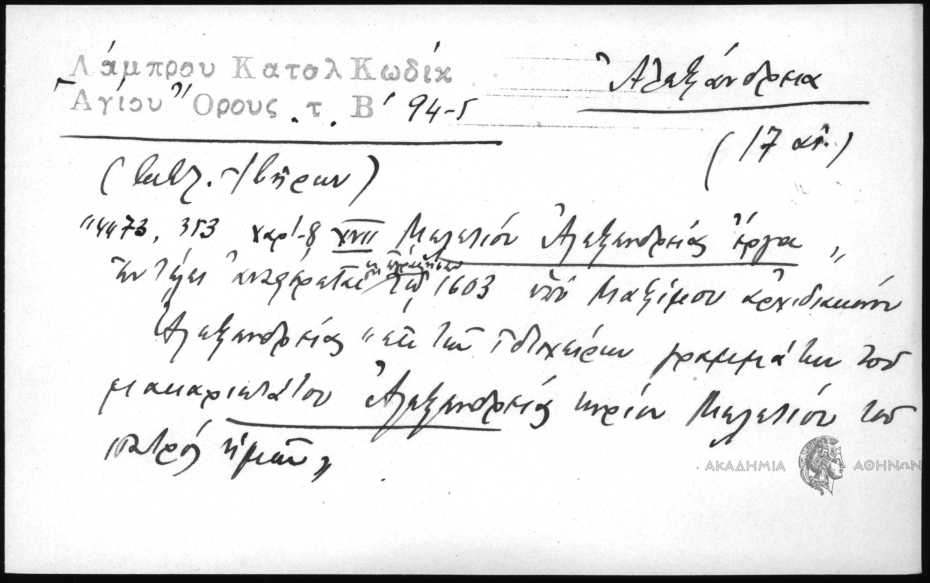 Λάμπρου Καταλ Κωδίκ
Ἁγίου Ὄρους . τ . Β' 94-5
Ἀλεξάνδρεια
(17 αἰ.)
(Βιβλ. Ἰβήρων)
"4473, 353 χαρτ-8 XVII Μελετίου Ἀλεξανδρείας ἔργα"
Ἐν τέλει ἀναφέρεται τῷ 1603 ὑπὸ Μαξίμου ἀρχιδιακόνου
Ἀλεξανδρείας "ἐκ τῶν ἰδιοχείρων γραμμάτων τοῦ
μακαριωτάτου Ἀλεξανδρείας κυρίου Μελετίου τοῦ
πατρός ἡμῶν"
ΑΚΑΔΗΜΙΑ ΑΘΗΝΩΝ